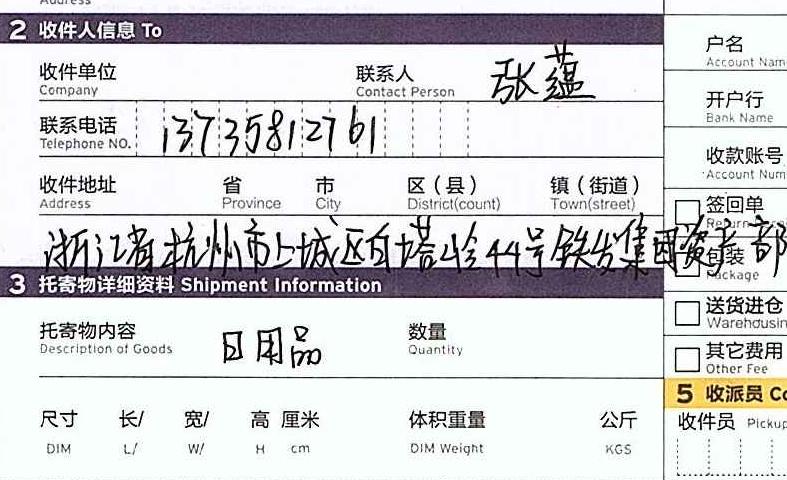 Address
2 收件人信息 To
收件单位
Company
联系人 张蕴
Contact Person
联系电话 13735812761
Telephone NO.
收件地址 省 市 区（县） 镇（街道）
Address Province City District(count) Town(street)
浙江省杭州市上城区白塔岭44号铁发集团资产部
3 托寄物详细资料 Shipment Information
托寄物内容 日用品 数量
Description of Goods Quantity
尺寸 长/ 宽/ 高 厘米 体积重量 公斤
DIM L/ W/ H cm DIM Weight KGS
户名
Account Nam
开户行
Bank Name
收款账号
Account Num
签回单
Return
包装
Package
送货进仓
Warehousin
其它费用
Other Fee
5 收派员 Co
收件员 Pickup